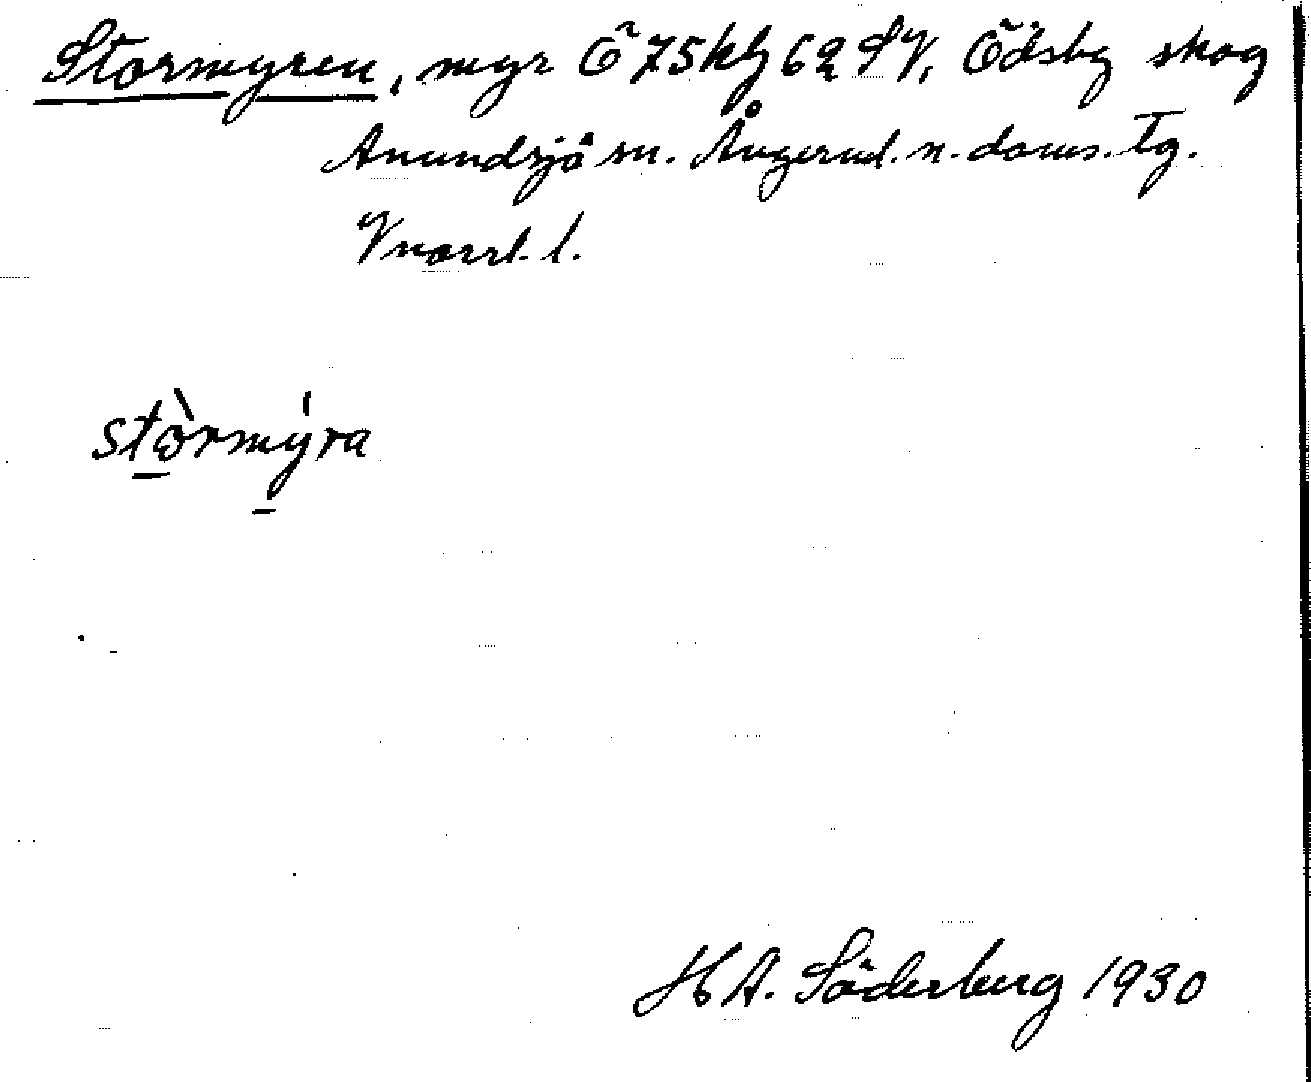 Stormyren, myr Ö 75 kbl 62 SV, Ödsby skog
Anundsjö sn. Ångerml. n. doms. Tg.
Vnorrl. l.
stòrmýra
H A. Söderberg 1930